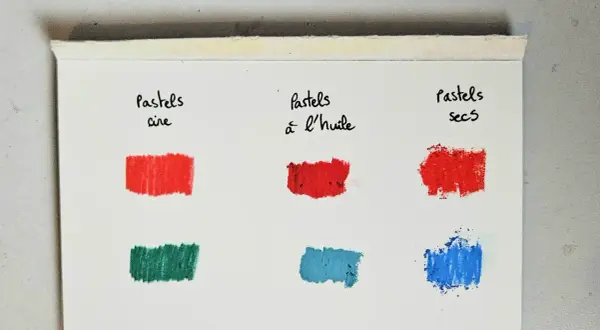 Pastels
cire
Pastels
à l'huile
Pastels
secs